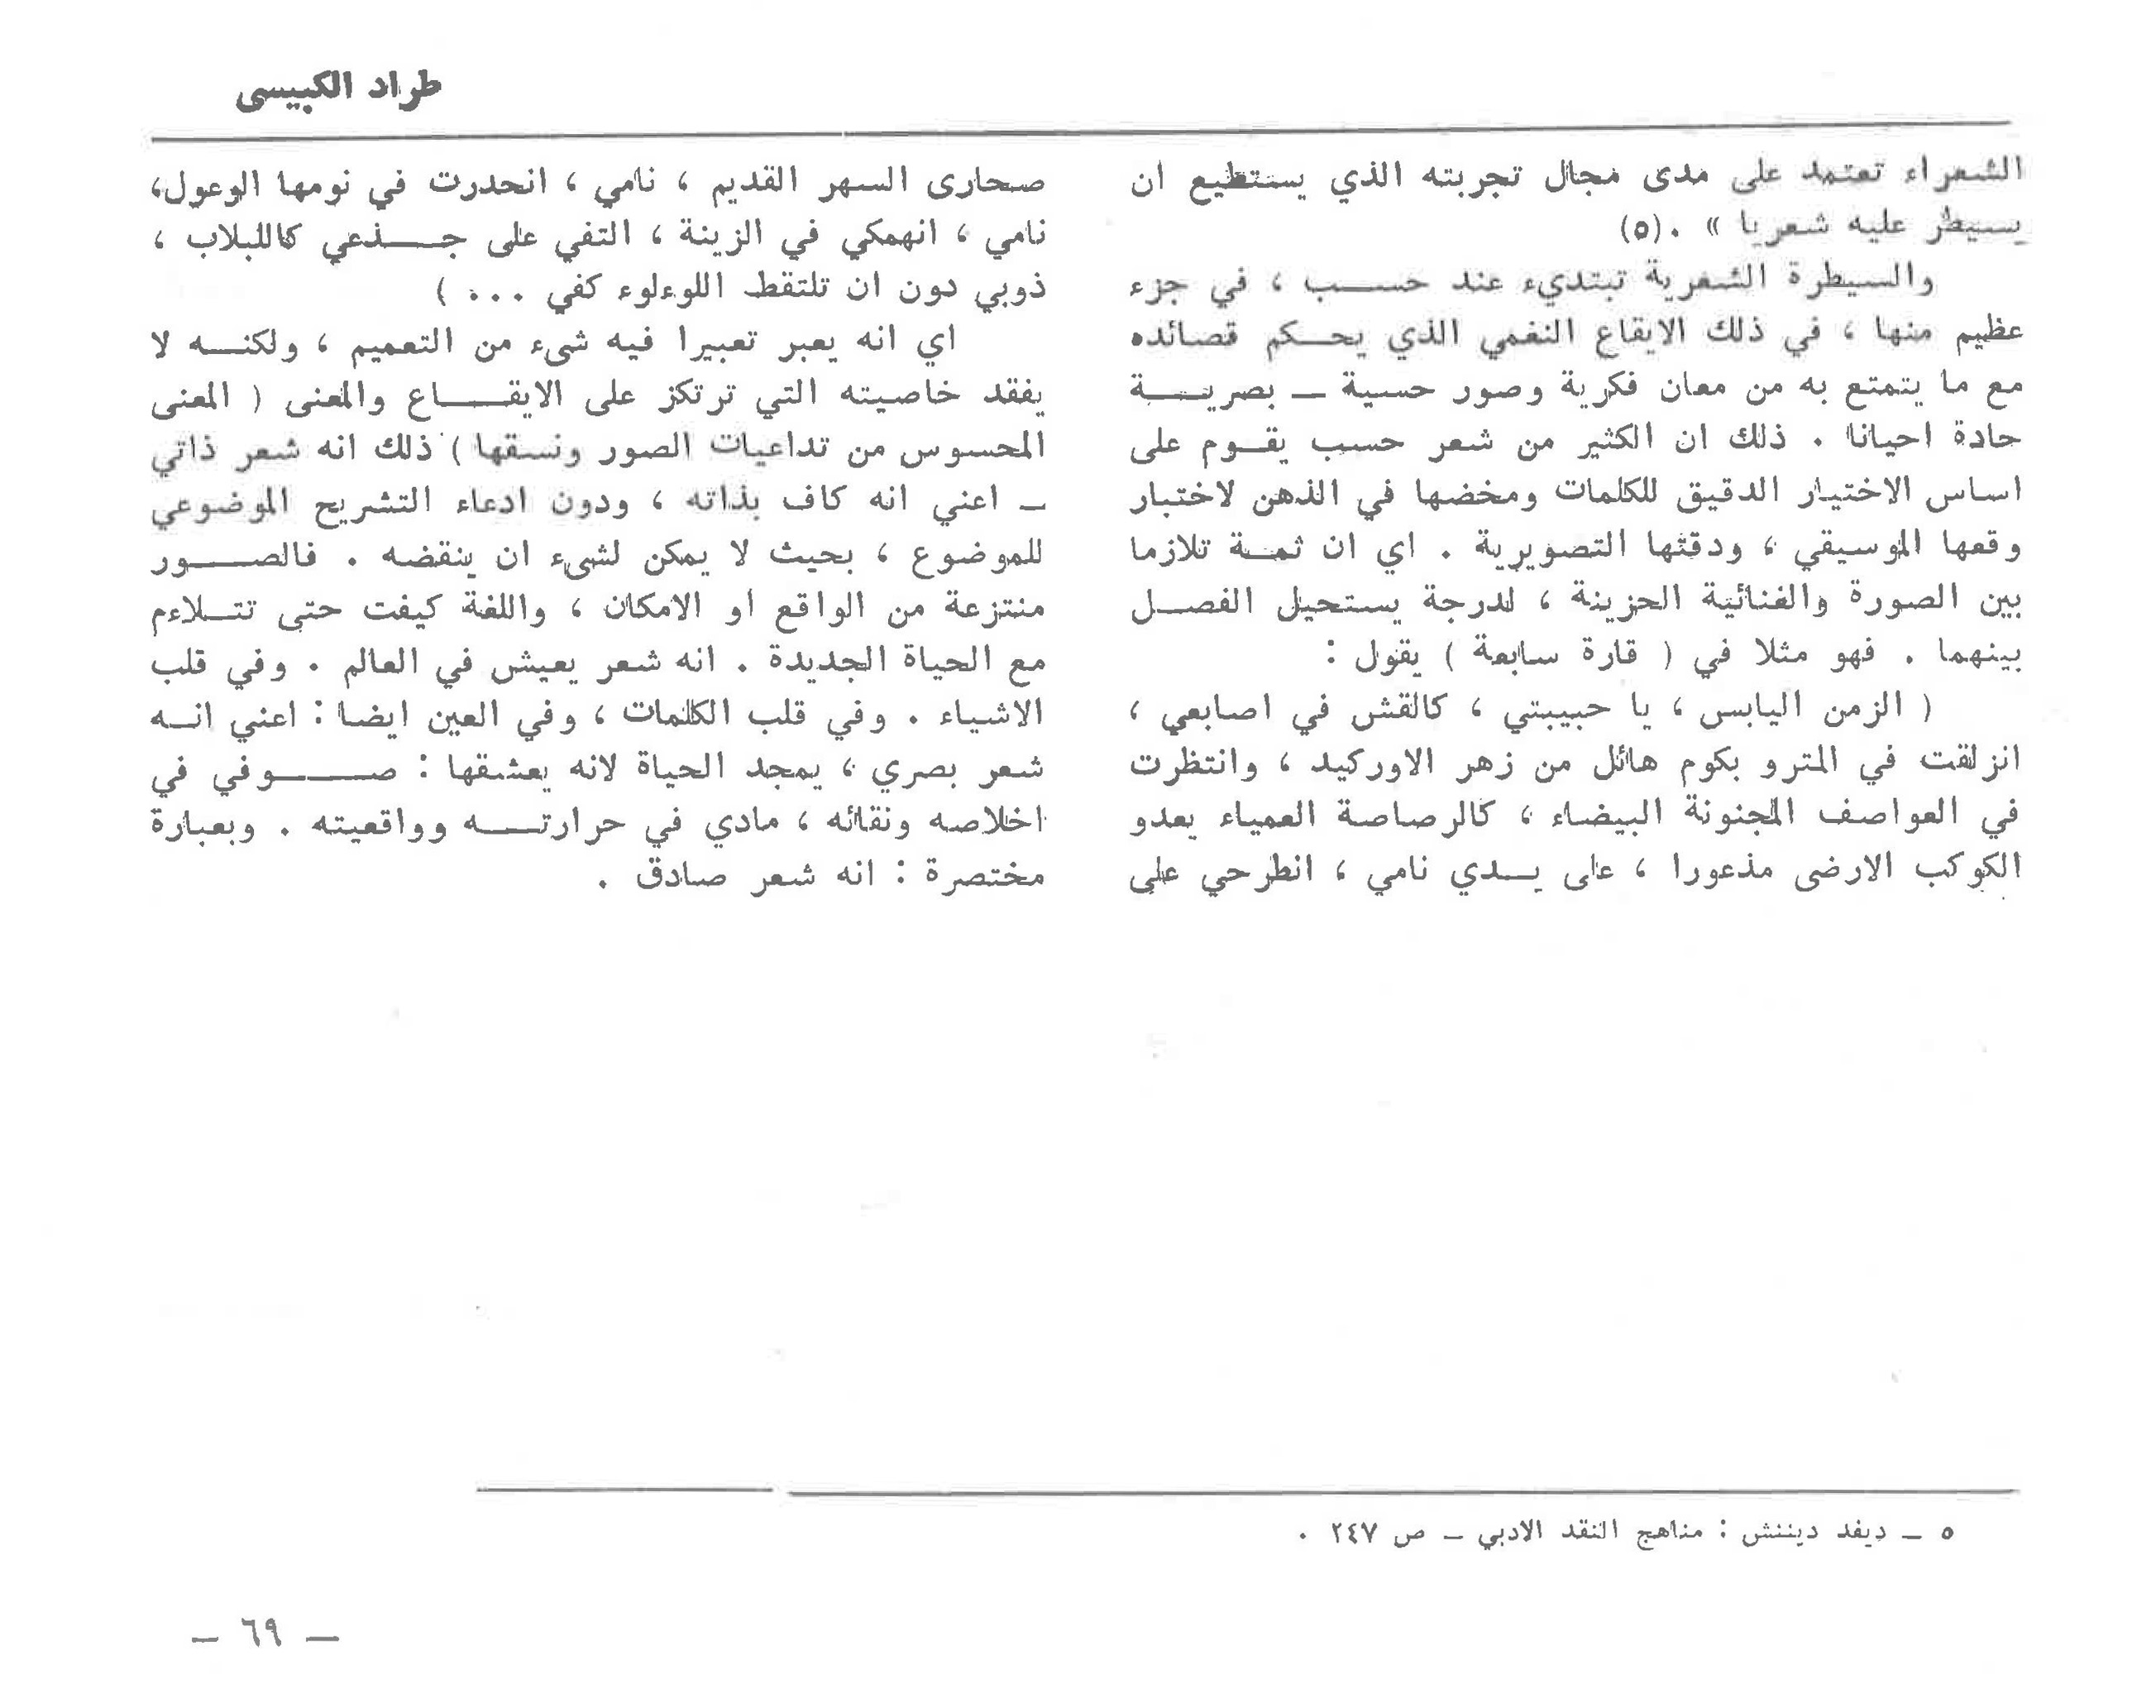 طراد الكبيسى
الشعراء تعتمد على مدى مجال تجربته الذي يستطيع ان
يسيطر عليه شعريا » .(٥)
والسيطرة الشعرية تبتديء عند حسب ، في جزء
عظيم منها ، في ذلك الايقاع النغمي الذي يحكم قصائده
مع ما يتمتع به من معان فكرية وصور حسية ــ بصرية
حادة احيانا . ذلك ان الكثير من شعر حسب يقوم على
اساس الاختيار الدقيق للكلمات ومخضها في الذهن لاختبار
وقعها الموسيقي ، ودقتها التصويرية . اي ان ثمة تلازما
بين الصورة والغنائية الحزينة ، لدرجة يستحيل الفصل
بينهما . فهو مثلا في ( قارة سابعة ) يقول :
( الزمن اليابس ، يا حبيبتي ، كالقش في اصابعي ،
انزلقت في المترو بكوم هائل من زهر الاوركيد ، وانتظرت
في العواصف المجنونة البيضاء ، كالرصاصة العمياء يعدو
الكوكب الارضى مذعورا ، على يدي نامي ، انطرحي على
صحارى السهر القديم ، نامي ، انحدرت في نومها الوعول،
نامي ، انهمكي في الزينة ، التفي على جذعي كاللبلاب ،
ذوبي دون ان تلتقط اللوءلوء كفي ... )
اي انه يعبر تعبيرا فيه شىء من التعميم ، ولكنه لا
يفقد خاصيته التي ترتكز على الايقاع والمعنى ( المعنى
المحسوس من تداعيات الصور ونسقها ) ذلك انه شعر ذاتي
ــ اعني انه كاف بذاته ، ودون ادعاء التشريح الموضوعي
للموضوع ، بحيث لا يمكن لشىء ان ينقضه . فالصور
منتزعة من الواقع او الامكان ، واللغة كيفت حتى تتلاءم
مع الحياة الجديدة . انه شعر يعيش في العالم . وفي قلب
الاشياء . وفي قلب الكلمات ، وفي العين ايضا : اعني انه
شعر بصري ، يمجد الحياة لانه يعشقها : صوفي في
اخلاصه ونقائه ، مادي في حرارته وواقعيته . وبعبارة
مختصرة : انه شعر صادق .
٥ ــ ديفد ديننش : مناهج النقد الادبي ــ ص ٢٤٧ .
ــ ٦٩ ــ